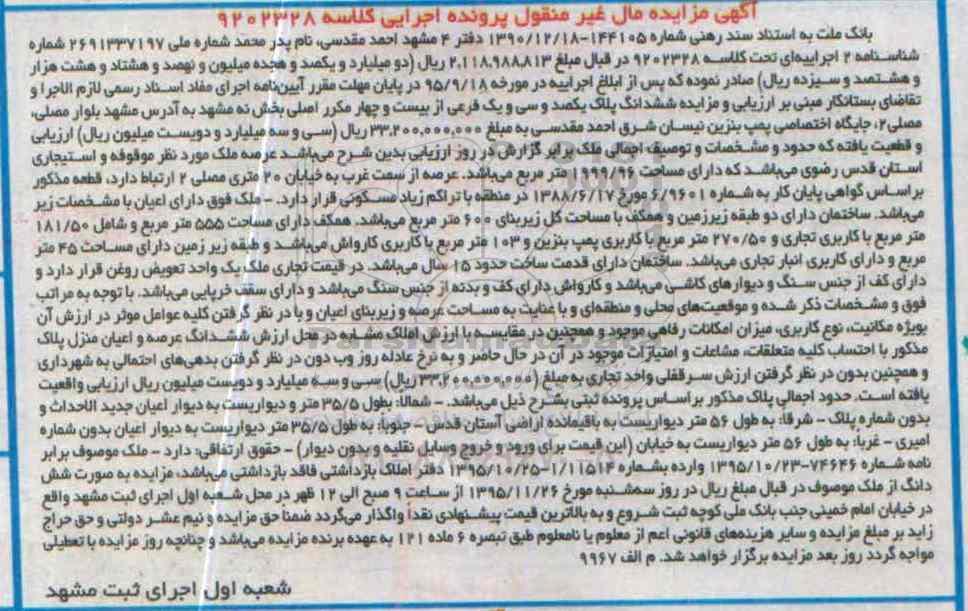 آگهی مزایده مال غیر منقول پرونده اجرایی کلاسه ۹۲۰۲۳۲۸
بانک ملت به استناد سند رهنی شماره ۱۴۴۱۰۵-۱۳۹۰/۱۲/۱۸ دفتر ۴ مشهد احمد مقدسی، نام پدر محمد شماره ملی ۲۶۹۱۳۳۷۱۹۷ شماره
شناسنامه ۲ اجراییه‌ای تحت کلاسه ۹۲۰۲۳۲۸ در قبال مبلغ ۲,۱۱۸,۹۸۸,۸۱۳ ریال (دو میلیارد و یکصد و هجده میلیون و نهصد و هشتاد و هشت هزار
و هشتصد و سیزده ریال) صادر نموده که پس از ابلاغ اجراییه در مورخه ۹۵/۹/۱۸ در پایان مهلت مقرر آیین‌نامه اجرای مفاد اسناد رسمی لازم الاجرا و
تقاضای بستانکار مبنی بر ارزیابی و مزایده ششدانگ پلاک یکصد و سی و یک فرعی از بیست و چهار مکرر اصلی بخش نه مشهد به آدرس مشهد بلوار مصلی،
مصلی۲، جایگاه اختصاصی پمپ بنزین نیسان شرق احمد مقدسی به مبلغ ۳۳,۲۰۰,۰۰۰,۰۰۰ ریال (سی و سه میلیارد و دویست میلیون ریال) ارزیابی
و قطعیت یافته که حدود و مشخصات و توصیف اجمالی ملک برابر گزارش در روز ارزیابی بدین شرح می‌باشد عرصه ملک مورد نظر موقوفه و استیجاری
استان قدس رضوی می‌باشد که دارای مساحت ۱۹۹۹/۹۶ متر مربع می‌باشد. عرصه از سمت غرب به خیابان ۲۰ متری مصلی ۲ ارتباط دارد، قطعه مذکور
براساس گواهی پایان کار به شماره ۶/۹۶۰۱ مورخ ۱۳۸۸/۶/۱۷ در منطقه با تراکم زیاد مسکونی قرار دارد. - ملک فوق دارای اعیان با مشخصات زیر
می‌باشد. ساختمان دارای دو طبقه زیرزمین و همکف با مساحت کل زیربنای ۶۰۰ متر مربع می‌باشد. همکف دارای مساحت ۵۵۵ متر مربع و شامل ۱۸۱/۵۰
متر مربع با کاربری تجاری و ۲۷۰/۵۰ متر مربع با کاربری پمپ بنزین و ۱۰۳ متر مربع با کاربری کارواش می‌باشد و طبقه زیر زمین دارای مساحت ۴۵ متر
مربع و دارای کاربری انبار تجاری می‌باشد. ساختمان دارای قدمت ساخت حدود ۱۵ سال می‌باشد. در قیمت تجاری ملک یک واحد تعویض روغن قرار دارد و
دارای کف از جنس سنگ و دیوارهای کاشی می‌باشد و کارواش دارای کف و بدنه از جنس سنگ می‌باشد و دارای سقف خرپایی می‌باشد. با توجه به مراتب
فوق و مشخصات ذکر شده و موقعیت‌های محلی و منطقه‌ای و با عنایت به مساحت عرصه و زیربنای اعیان و با در نظر گرفتن کلیه عوامل موثر در ارزش آن
بویژه مکانیت، نوع کاربری، میزان امکانات رفاهی موجود و همچنین در مقایسه با ارزش املاک مشابه در محل ارزش ششدانگ عرصه و اعیان منزل پلاک
مذکور با احتساب کلیه متعلقات، مشاعات و امتیازات موجود در آن در حال حاضر و به نرخ عادله روز وب دون در نظر گرفتن بدهی‌های احتمالی به شهرداری
و همچنین بدون در نظر گرفتن ارزش سرقفلی واحد تجاری به مبلغ (۳۳,۲۰۰,۰۰۰,۰۰۰ ریال) سی و سه میلیارد و دویست میلیون ریال ارزیابی واقعیت
یافته است. حدود اجمالی پلاک مذکور براساس پرونده ثبتی بشرح ذیل می‌باشد. - شمالا: بطول ۳۵/۵ متر و دیواریست به دیوار اعیان جدید الاحداث و
بدون شماره پلاک - شرقا: به طول ۵۶ متر دیواریست به باقیمانده اراضی آستان قدس - جنوبا: به طول ۳۵/۵ متر دیواریست به دیوار اعیان بدون شماره
امیری - غربا: به طول ۵۶ متر دیواریست به خیابان (این قیمت برای ورود و خروج وسایل نقلیه و بدون دیوار) - حقوق ارتفاقی: دارد - ملک موصوف برابر
نامه شماره ۷۴۶۴۶-۱۳۹۵/۱۰/۲۳ وارده بشماره ۱/۱۱۵۱۴-۱۳۹۵/۱۰/۲۵ دفتر املاک بازداشتی فاقد بازداشتی می‌باشد، مزایده به صورت شش
دانگ از ملک موصوف در قبال مبلغ ریال در روز سه‌شنبه مورخ ۱۳۹۵/۱۱/۲۶ از ساعت ۹ صبح الی ۱۲ ظهر در محل شعبه اول اجرای ثبت مشهد واقع
در خیابان امام خمینی جنب بانک ملی کوچه ثبت شروع و به بالاترین قیمت پیشنهادی نقداً واگذار می‌گردد ضمنا حق مزایده و نیم عشر دولتی و حق حراج
زاید بر مبلغ مزایده و سایر هزینه‌های قانونی اعم از معلوم یا نامعلوم طبق تبصره ۶ ماده ۱۲۱ به عهده برنده مزایده می‌باشد و چنانچه روز مزایده با تعطیلی
مواجه گردد روز بعد مزایده برگزار خواهد شد. م الف ۹۹۶۷
شعبه اول اجرای ثبت مشهد